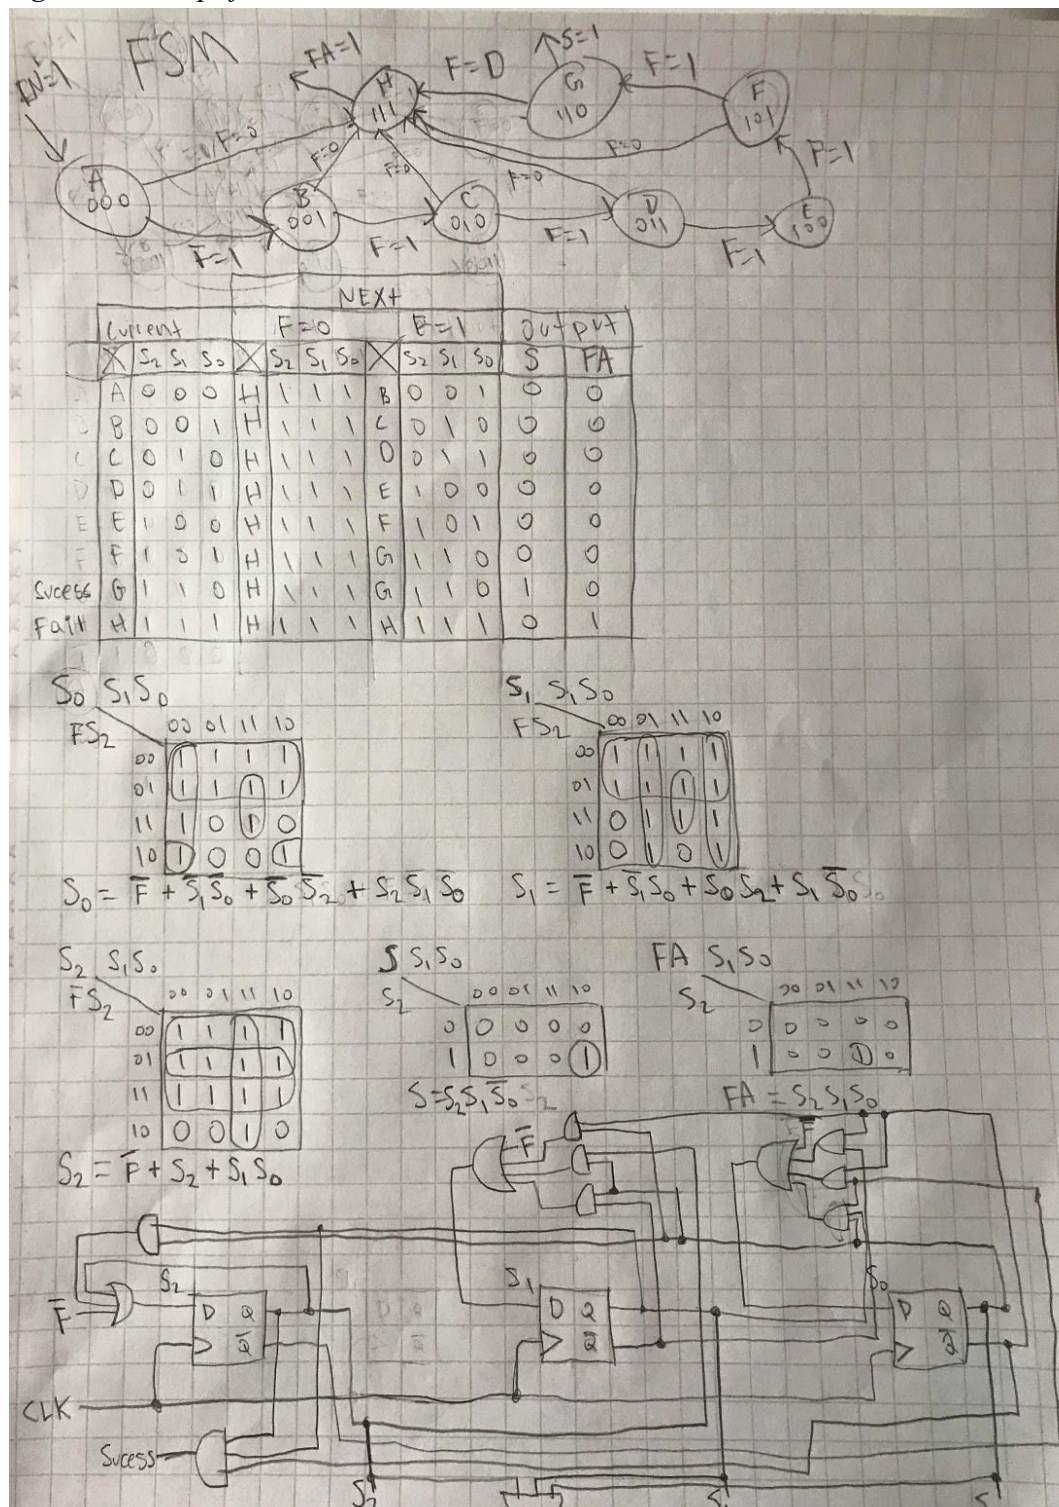 FSM
EN=1
FA=1
S=1
F=0
F=1
H
111
G
110
F
101
F=0
F=0
F=0
F=0
F=0
F=1
A
000
B
001
C
010
D
011
E
100
F=1
F=1
F=1
F=1
NEXt
Current F=0 F=1 Output
X S2 S1 S0 X S2 S1 S0 X S2 S1 S0 S FA
A 0 0 0 H 1 1 1 B 0 0 1 0 0
B 0 0 1 H 1 1 1 C 0 1 0 0 0
C 0 1 0 H 1 1 1 D 0 1 1 0 0
D 0 1 1 H 1 1 1 E 1 0 0 0 0
E 1 0 0 H 1 1 1 F 1 0 1 0 0
F 1 0 1 H 1 1 1 G 1 1 0 0 0
Sucess G 1 1 0 H 1 1 1 G 1 1 0 1 0
Fail H 1 1 1 H 1 1 1 H 1 1 1 0 1
S0 S1S0
FS2 00 01 11 10
00 1 1 1 1
01 1 1 1 1
11 1 0 1 0
10 1 0 0 1
S0 = F̅ + S̅1S̅0 + S̅0S̅2 + S2S1S0
S1 S1S0
FS2 00 01 11 10
00 1 1 1 1
01 1 1 1 1
11 0 1 1 1
10 0 1 0 1
S1 = F̅ + S̅1S0 + S0S2 + S1S̅0
S2 S1S0
FS2 00 01 11 10
00 1 1 1 1
01 1 1 1 1
11 1 1 1 1
10 0 0 1 0
S2 = F̅ + S2 + S1S0
S S1S0
S2 00 01 11 10
0 0 0 0 0
1 0 0 0 1
S=S2S1S̅0
FA S1S0
S2 00 01 11 10
0 0 0 0 0
1 0 0 1 0
FA = S2S1S0
F̅
F̅
F̅
S2
D Q
Q̅
S1
D Q
Q̅
S0
D Q
Q̅
CLK
Sucess